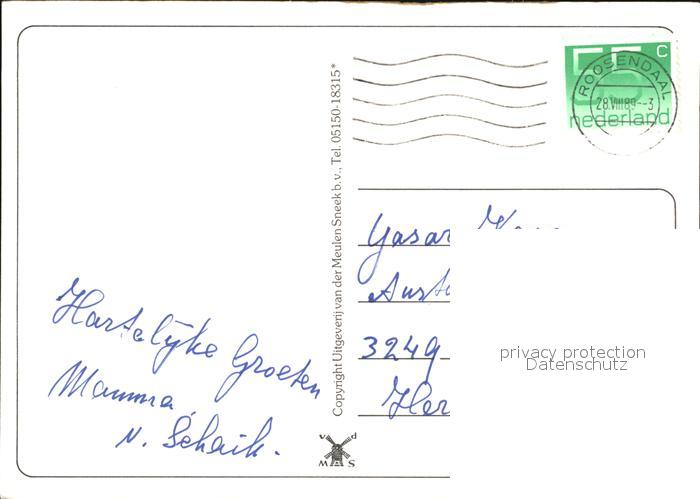 55 c
ROOSENDAAL
28.VIII.89.--3
nederland
Copyright Uitgeverij van der Meulen Sneek b.v., Tel. 05150-18315*
v d
M S
Hartelijke Groeten
Mamma
v. Schaik.
Yasar
3249
Her
privacy protection
Datenschutz